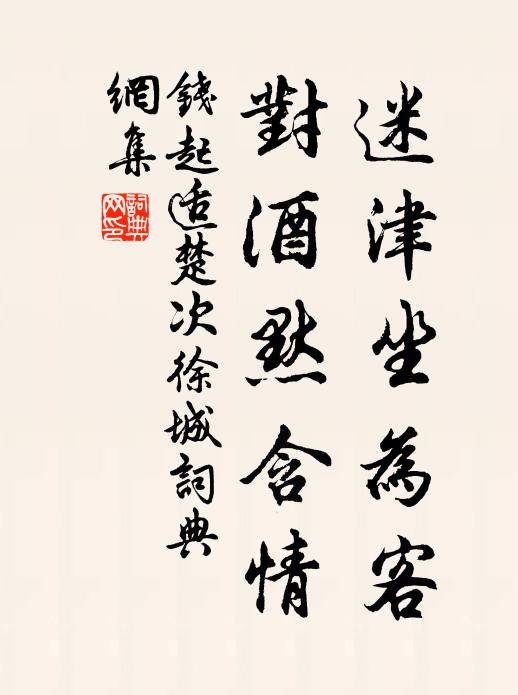 迷津坐為客
對酒默含情
錢起適楚次徐城詞典
網集
詞典
网印